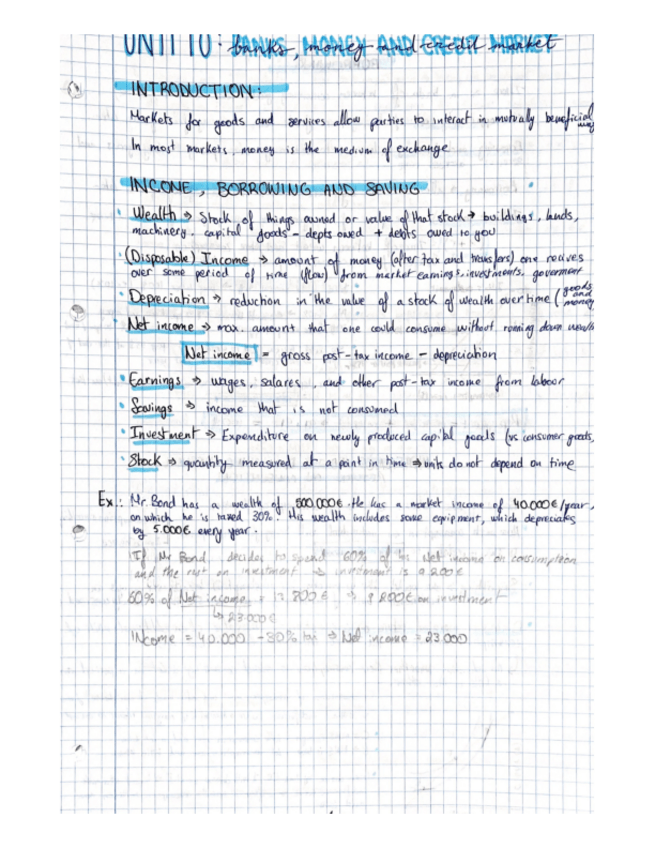 UNIT 10: banks, money and credit market
INTRODUCTION:
Markets for goods and services allow parties to interact in mutually beneficial way
In most markets, money is the medium of exchange
INCOME, BORROWING AND SAVING
• Wealth → Stock of things owned or value of that stock → buildings, lands,
machinery, capital goods - depts owed + debts owed to you
• (Disposable) Income → amount of money (after tax and transfers) one recives
over some period of time (flow) from market earnings, investments, goverment
• Depreciation → reduction in the value of a stock of wealth over time (goods and money
• Net income → max. amount that one could consume without running down wealth
Net income = gross post-tax income - depreciation
• Earnings → wages, salares, and other post-tax income from labour
• Savings → income that is not consumed
• Investment → Expenditure on newly produced capital goods (vs consumer goods,
• Stock → quantity measured at a point in time → units do not depend on time
Ex.: Mr Bond has a wealth of 500.000€. He has a market income of 40.000€/year,
on which he is taxed 30%. His wealth includes some equipment, which depreciates
by 5.000€ every year.
If Mr Bond decides to spend 60% of his Net income on consumption
and the rest on investment → investment is 9.200€
60% of Net income = 13.800€ → 9.200€ on investment
↳ 23.000€
INcome = 40.000 - 30% tax → Net income = 23.000